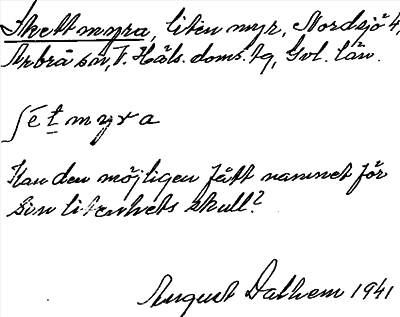 Skettmyra, liten myr, Nordsjö 4,
Arbrå sn, V. Häls. doms. tg, Gvl. län.
ʃétmyra
Kan den möjligen fått namnet för
sin litenhets skull?
August Dalhem 1941